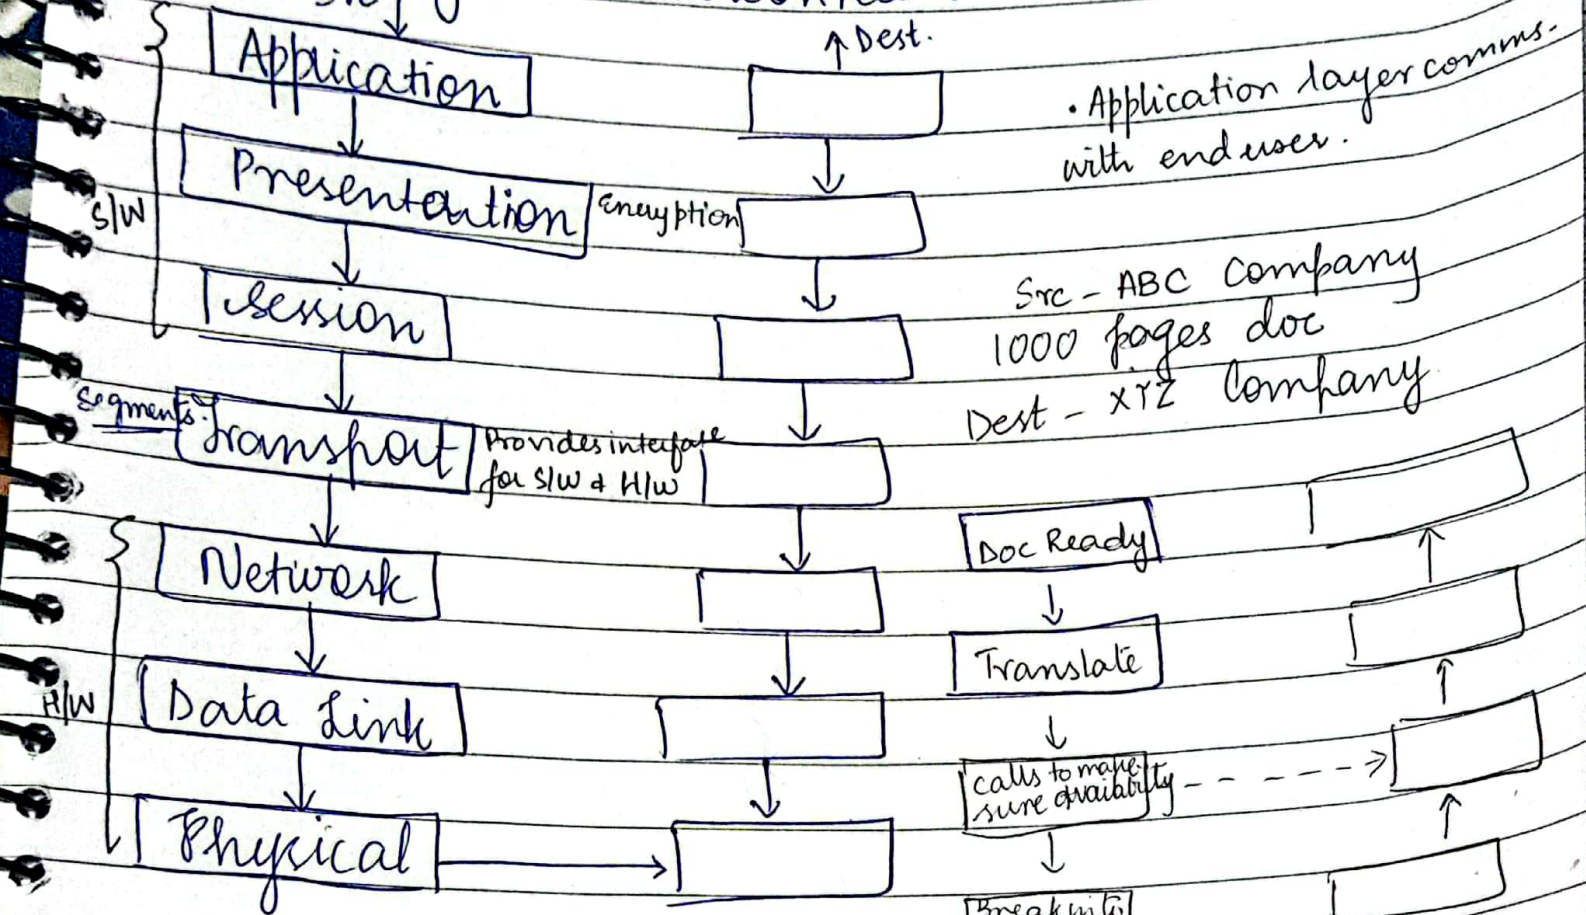 Application
Presentation
Encryption
S/W
Session
Segments.
Transport
Provides interface
for S/W & H/W
Network
H/W
Data Link
Physical
↑ Dest.
• Application layer comms.
with end user.
Src - ABC Company
1000 pages doc
Dest - XYZ Company
Doc Ready
Translate
calls to make
sure availability